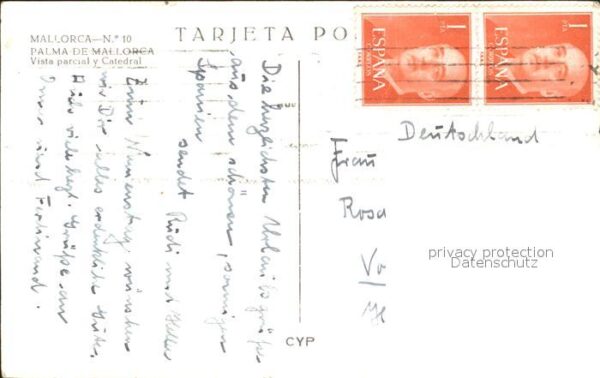 MALLORCA—N.º 10
PALMA DE MALLORCA
Vista parcial y Catedral
TARJETA PO
1
PTA
ESPAÑA
CORREOS
1
PTA
ESPAÑA
CORREOS
Die herzlichsten Urlaubsgrüße
aus dem schönen, sonnigen
Spanien
sendet Rudi und
Zum Namenstag wünschen
wir Dir alles erdenklich Gute.
viele herzl. Grüße an
und Ferdinand.
Deutschland
Frau
Rosa
Vo
privacy protection
Datenschutz
CYP